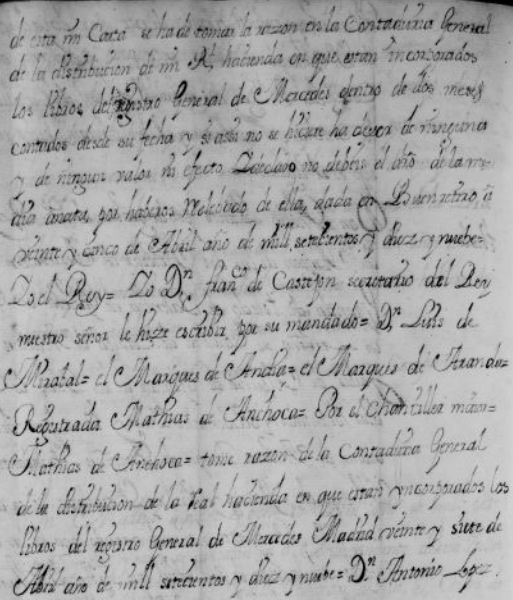 de esta mi Carta se ha de tomar la razon en la Contaduria General
de la distribucion de mi Rl. hacienda en que estan incorporados
los libros del registro General de Mercedes dentro de dos meses
contados desde su fecha y si assi no se hiziere ha de ser de ninguna
y de ningun valor ni efecto Declaro no debeis el año de la me
dia anata, por haberos Relebado de ella, dada en Buen retiro, a
veinte y cinco de Abril año de mill, setecientos y diez y nuebe=
Yo el Rey= Yo Dn. Franco. de Castejon secretario del Rey
nuestro señor le hize escribir por su mandado= Dn. Luis de
Miraval= el Marques de Andia= el Marques de Aranda=
Registrada Mathias de Anchoca= Por el Chanciller maior=
Mathias de Anchoca= tome razon de la Contaduria General
de la distribucion de la real hacienda en que estan yncorporados los
libros del registro General de Mercedes Madrid veinte y siete de
Abril año de mill setecientos y diez y nuebe= Dn. Antonio Lopez.